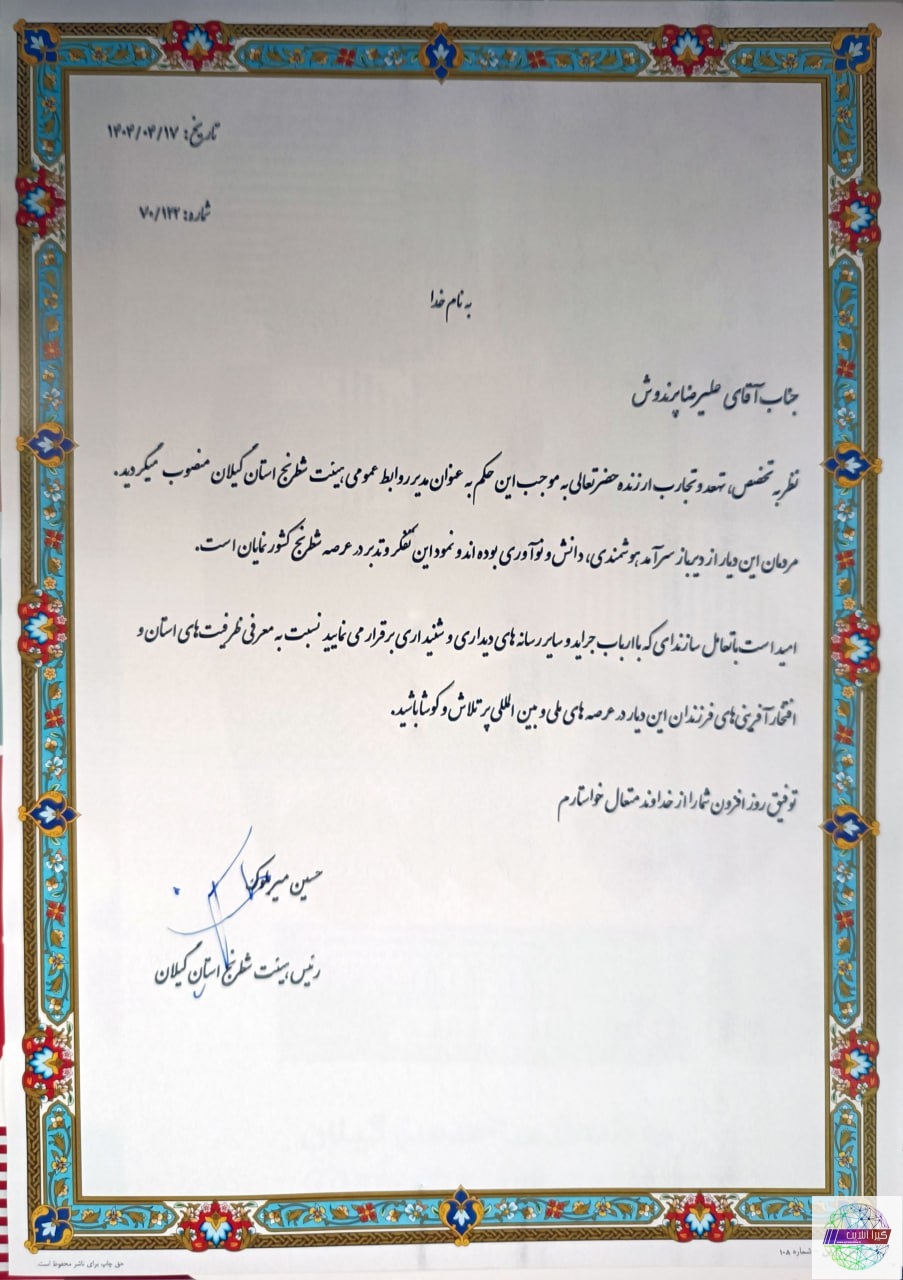 تاریخ: ۱۴۰۴/۰۴/۱۷
شماره: ۷۰/۱۲۲
به نام خدا
جناب آقای علیرضا پرندوش
نظر به تخصص، تعهد و تجارب ارزنده حضرتعالی به موجب این حکم به عنوان مدیر روابط عمومی هیئت شطرنج استان گیلان منصوب میگردید.
مردمان این دیار از دیرباز سرآمد هوشمندی، دانش و نوآوری بوده اند و نمود این تفکر و تدبر در عرصه شطرنج کشور نمایان است.
امید است با تعامل سازنده ای که با ارباب جراید و سایر رسانه های دیداری و شنیداری برقرار می نمایید نسبت به معرفی ظرفیت های استان و
افتخارآفرینی های فرزندان این دیار در عرصه های ملی و بین المللی پر تلاش و کوشا باشید.
توفیق روز افزون شما را از خداوند متعال خواستارم
حسین میر
رئیس هیئت شطرنج استان گیلان
شماره ۱۰۸
حق چاپ برای ناشر محفوظ است.
گیرا آنلاین